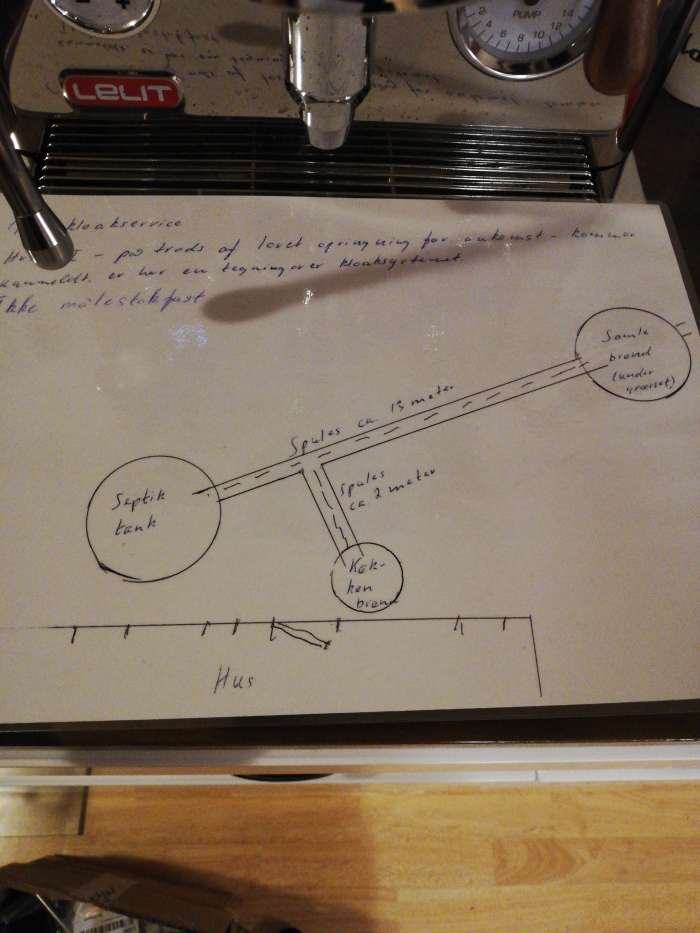 2 14
PUMP
4 12
6 8 10
LELIT
kloakservice
I - på trods af lovet opringning for ankomst - kommer
uanmeldt, er her en tegning over kloaksystemet
Ikke målestokfast
Samle
brønd
(under
græsset)
Spules ca. 13 meter
Spules
ca. 2 meter
Septik
tank
Køk-
ken
brønd
Hus